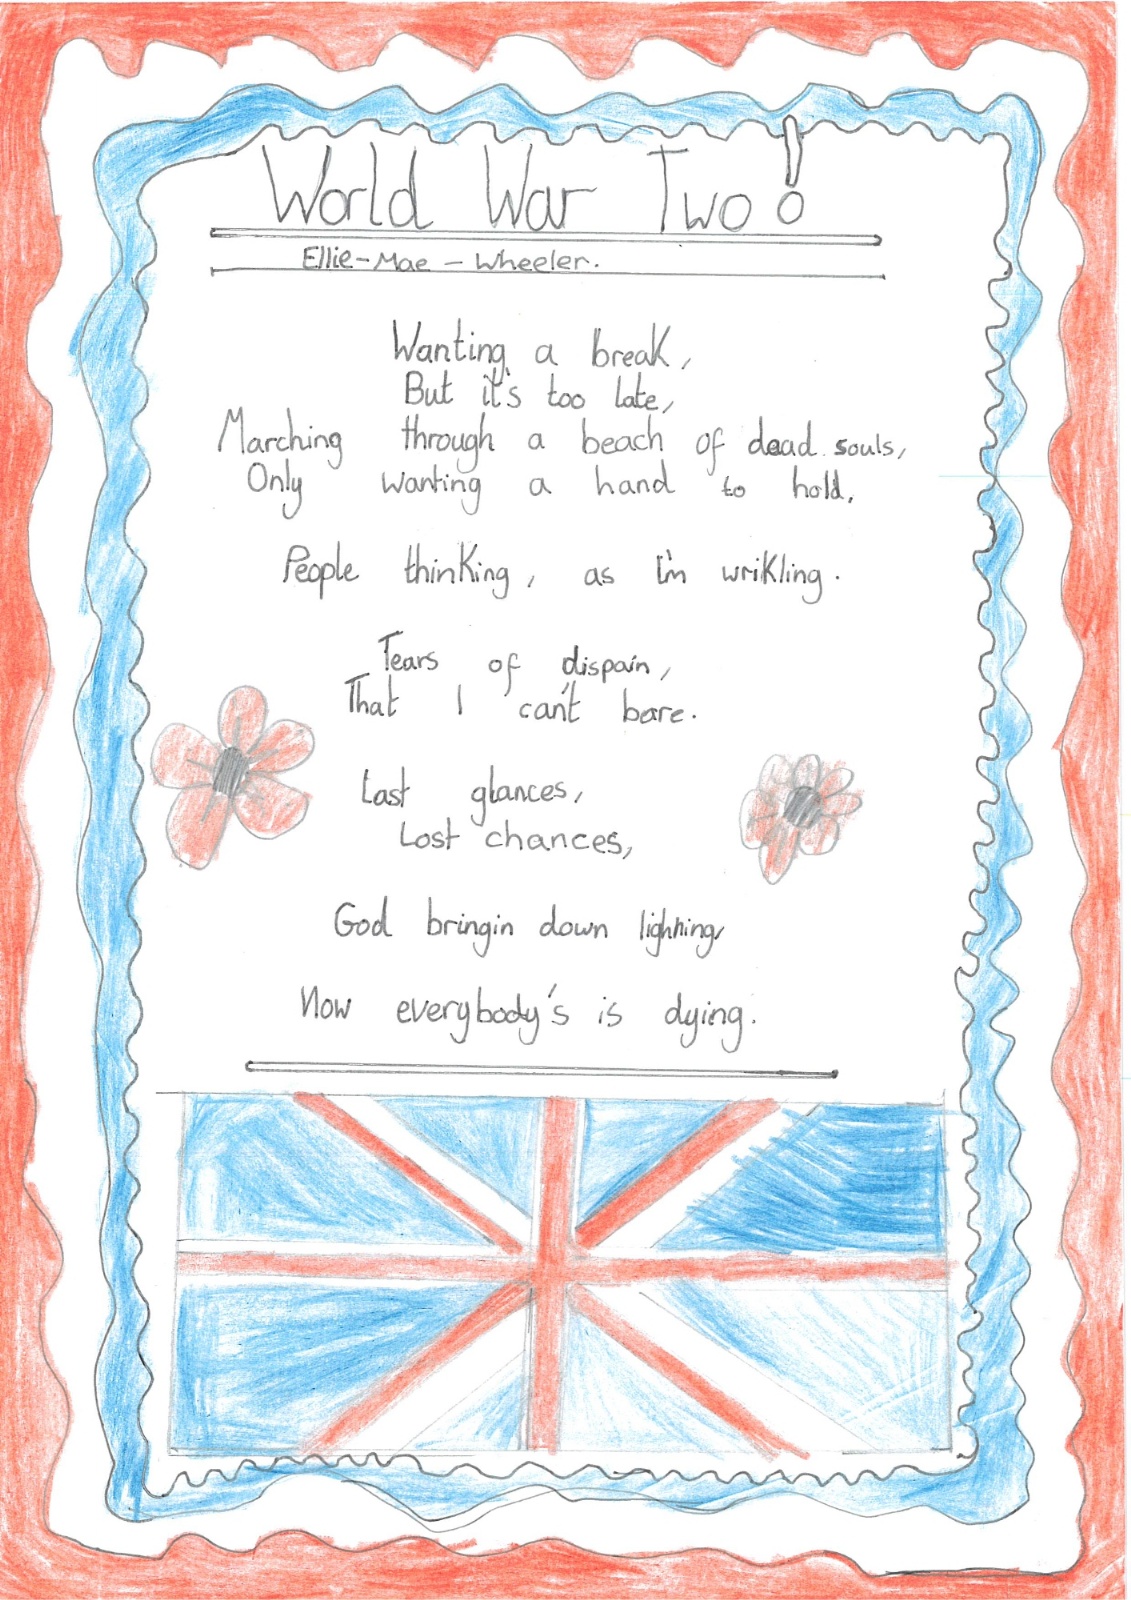 World War Two!
Ellie-Mae - Wheeler.
Wanting a break,
But it's too late,
Marching through a beach of dead souls,
Only wanting a hand to hold.
People thinking, as I'm wrikling.
Tears of dispain,
That I can't bare.
Last glances,
Lost chances,
God bringin down lighning,
Now everybody's is dying.